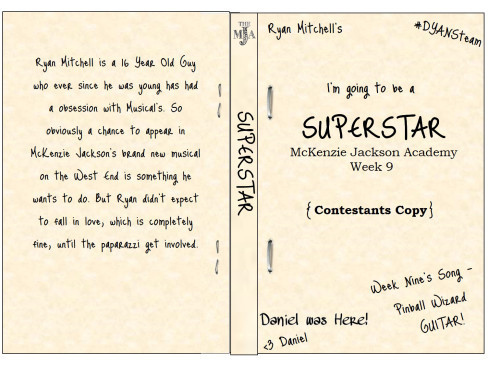 Ryan Mitchell is a 16 Year Old Guy
who ever since he was young has had
a obsession with Musical's. So
obviously a chance to appear in
McKenzie Jackson's brand new musical
on the West End is something he
wants to do. But Ryan didn't expect
to fall in love, which is completely
fine, until the paparazzi get involved.
THE
MJA
SUPERSTAR
Ryan Mitchell's
#DYANSteam
I'm going to be a
SUPERSTAR
McKenzie Jackson Academy
Week 9
{Contestants Copy}
Week Nine's Song -
Pinball Wizard
GUITAR!
Daniel was Here!
<3 Daniel